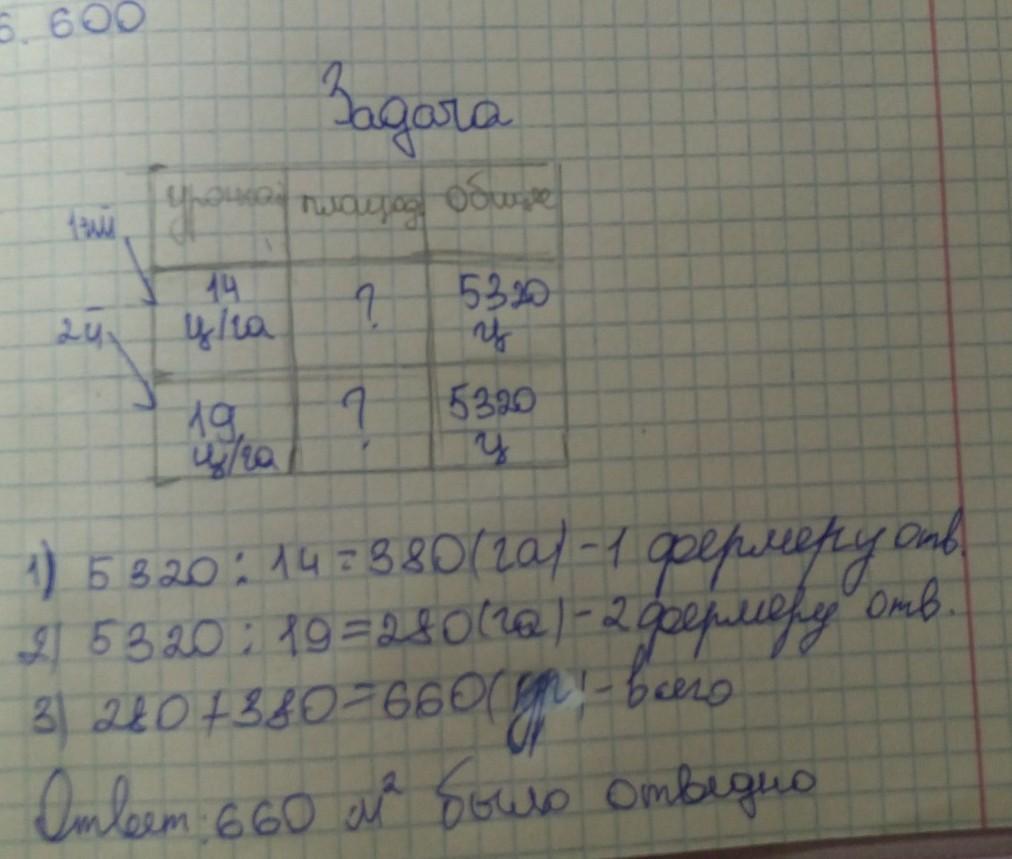 6. 600
Задача
урожай площад Общее
1-ый 14 ц/га ? 5320 ц
2й 19 ц/га ? 5320 ц
1) 5320 : 14 = 380 (га) - 1 фермеру отв.
2) 5320 : 19 = 280 (га) - 2 фермеру отв.
3) 280 + 380 = 660 ( ) - всего
Ответ: 660 м² было отведно